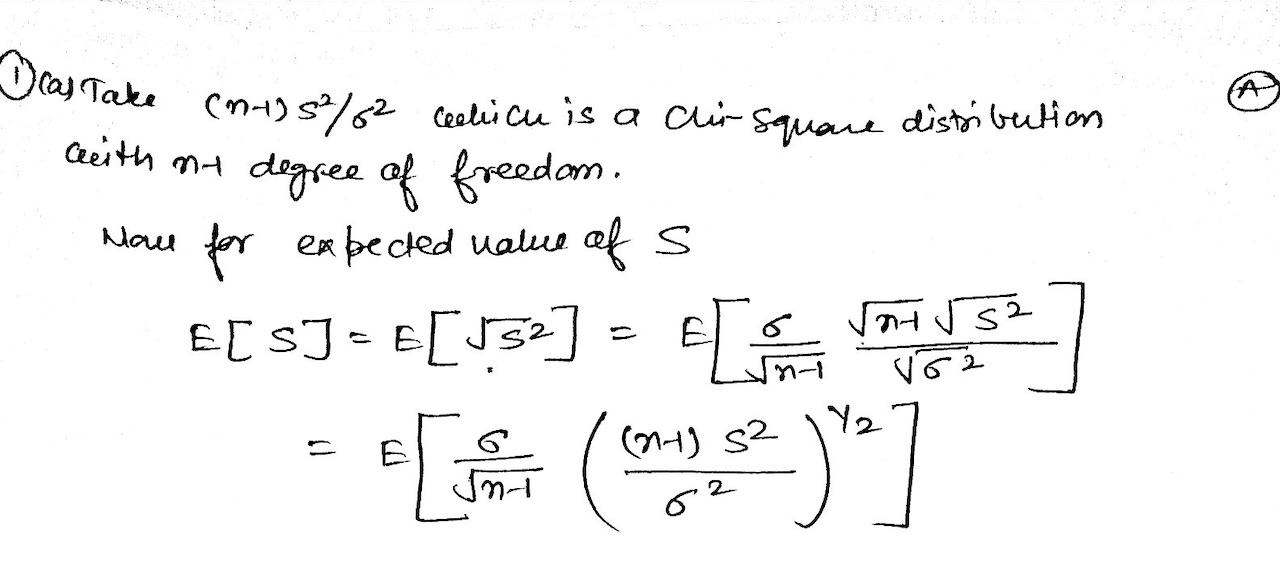 ① (a) Take (n-1) S²/σ² which is a chi-square distribution Ⓐ
with n-1 degree of freedom.
Now for expected value of S
E[S] = E[√S²] = E[σ/√n-1 √n-1 √S²/√σ²]
= E[σ/√n-1 ((n-1) S²/σ²)^1/2]